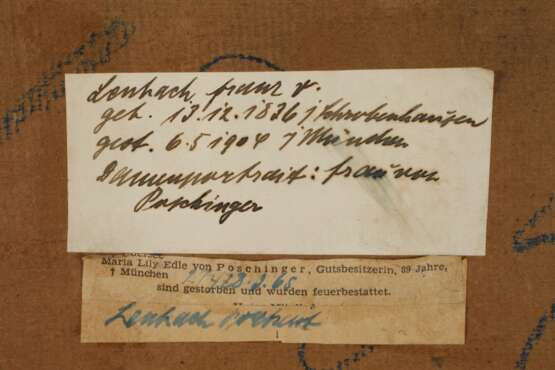 Lenbach, franz v.
geb. 13.12.1836 j Schrobenhausen
gest. 6.5 1904 j München
Damenportrait: frau von
Poschinger
Maria Lily Edle von Poschinger, Gutsbesitzerin, 89 Jahre,
† München
sind gestorben und wurden feuerbestattet.
Lenbach